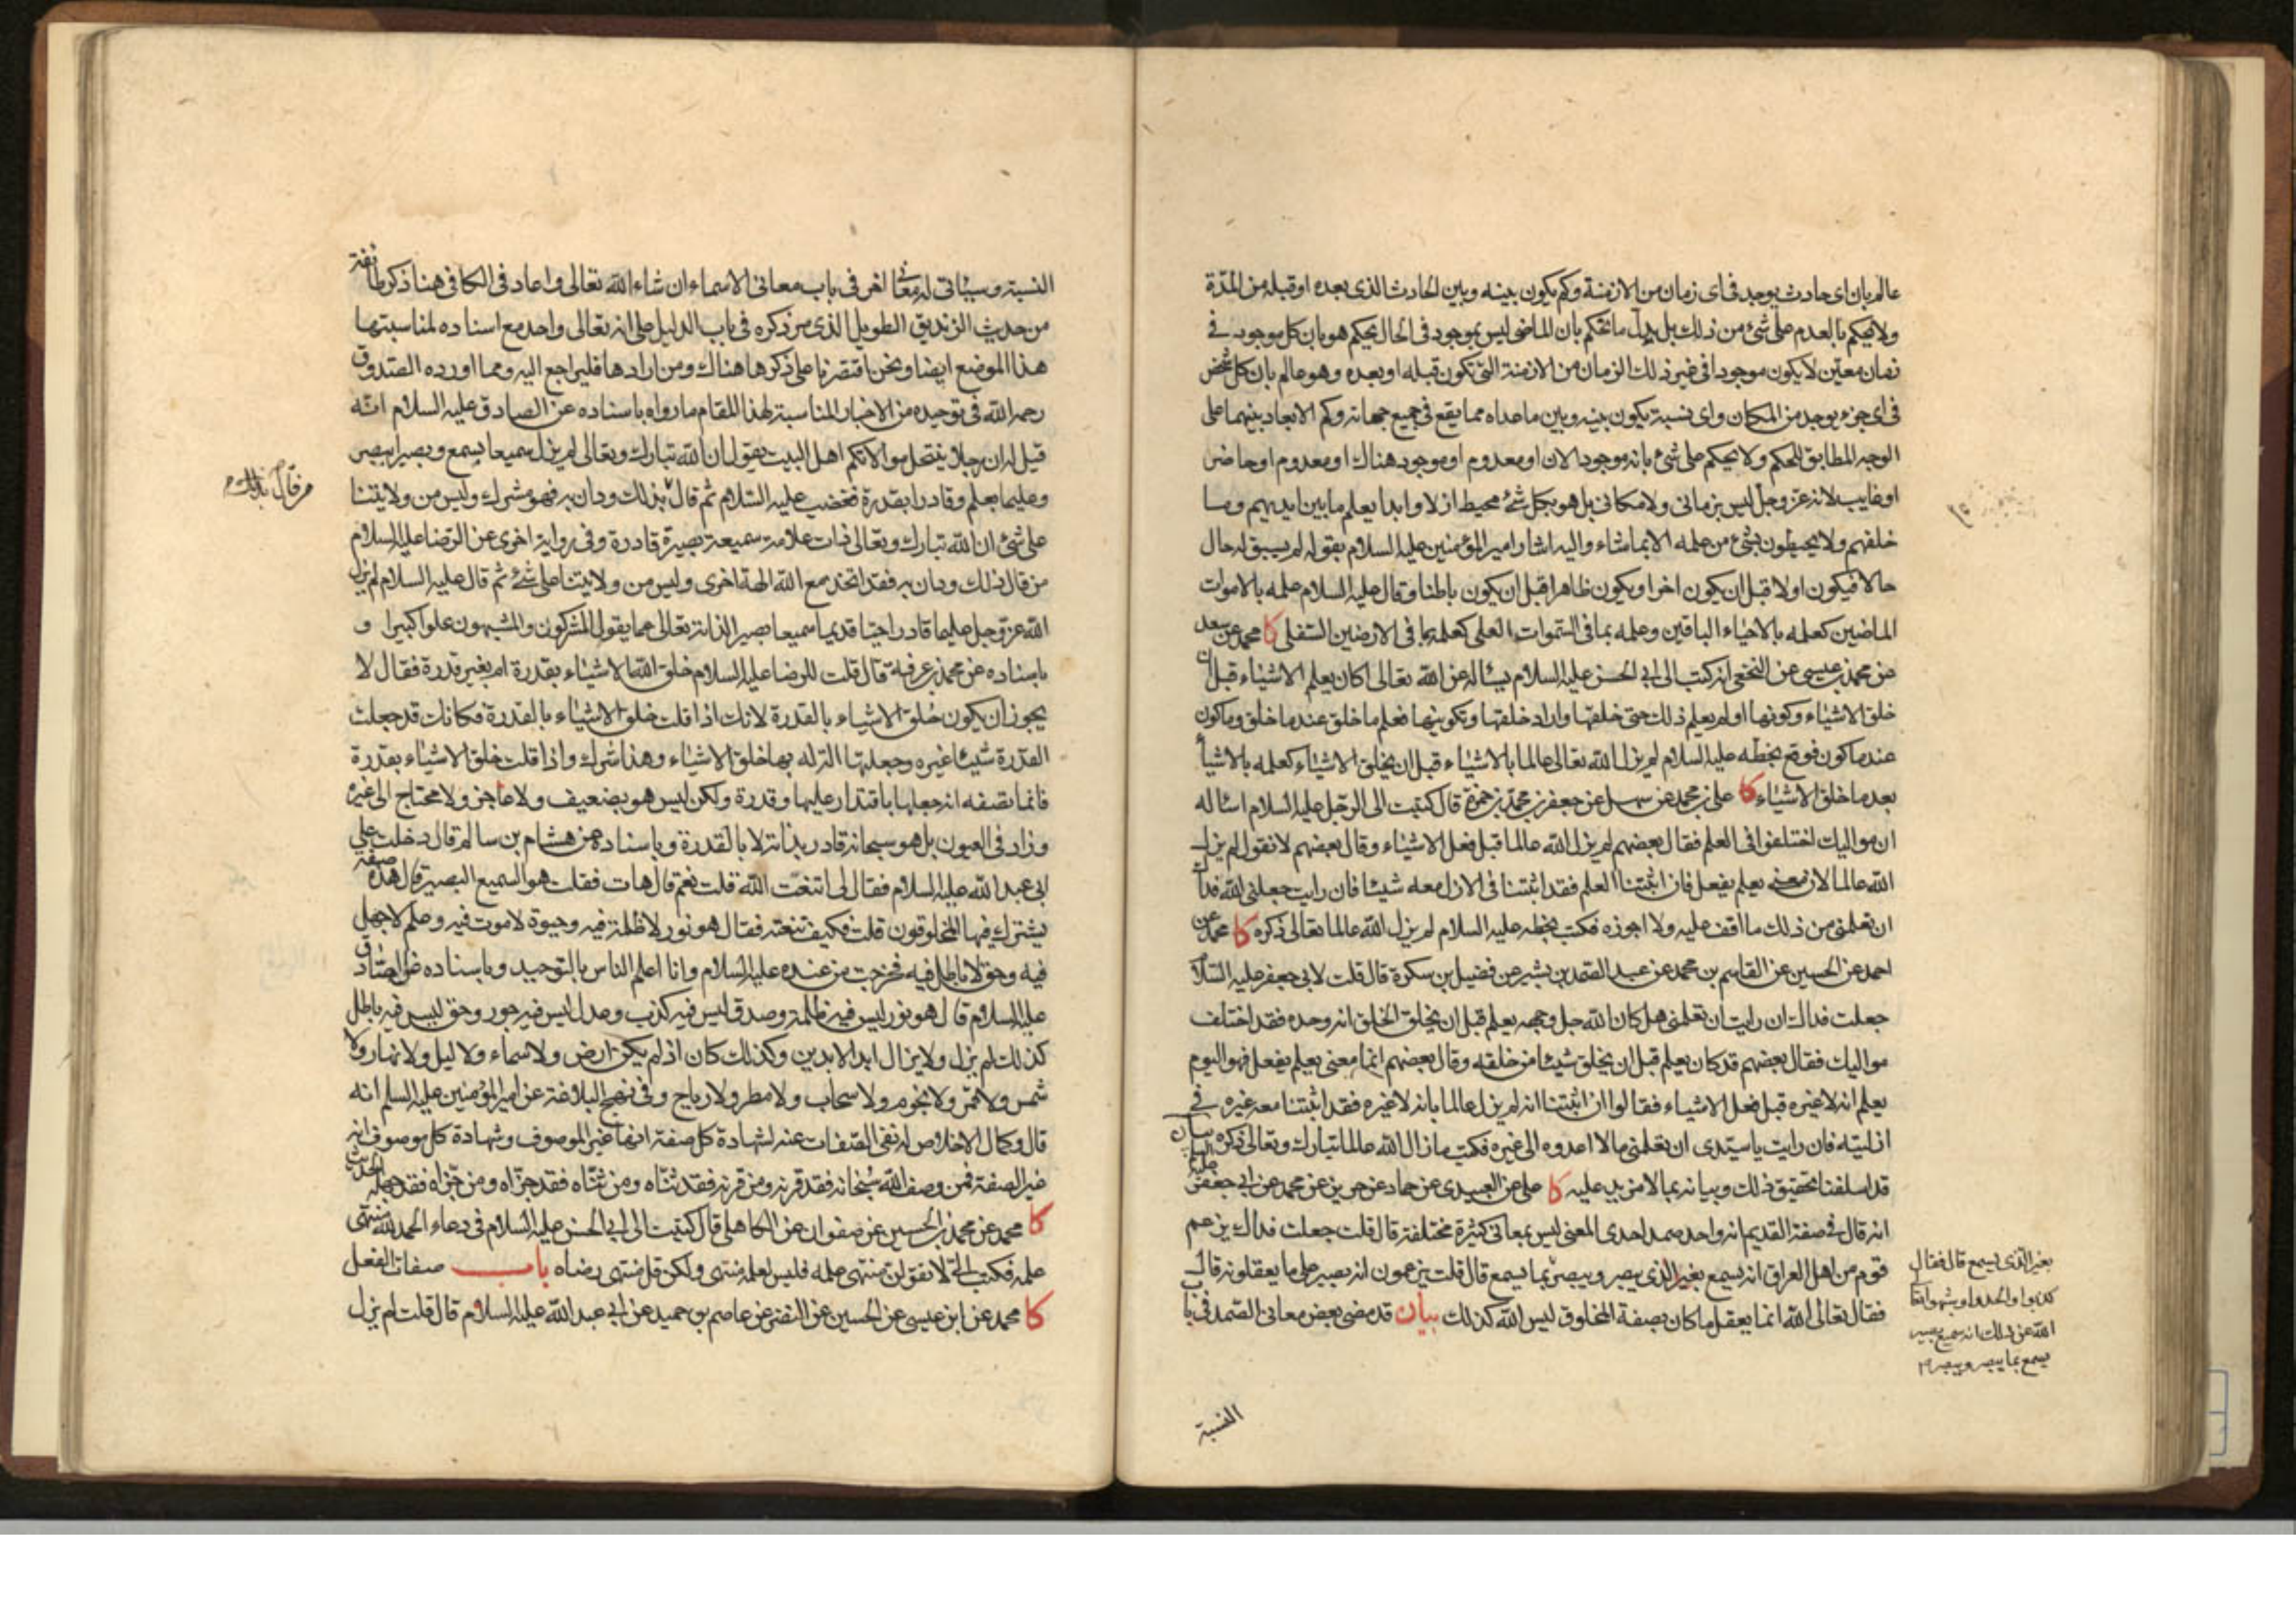 عالم بان اى حادث يوجد فى اى زمان من الازمنة وكم يكون بينه وبين الحادث الذى بعده او قبله من المدّة
ولا يحكم بالعدم على شئ من ذلك بل بدل ما نحكم بان الماضى ليس بموجود فى الحال يحكم هو بان كل موجود فى
زمان معيّن لا يكون موجودا فى غير ذلك الزمان من الازمنة التى تكون قبله او بعده وهو عالم بان كل شخص
فى اى جزء يوجد من المكان واى نسبة يكون بينه وبين ما عداه مما يقع فى جميع جهاته وكم الابعاد بينهما على
الوجه المطابق للحكم ولا يحكم على شئ بانه موجود الان او معدوم او موجود هناك او معدوم او حاضر
او غايب لانه عز وجل ليس بزمانى ولا مكانى بل هو بكل شئ محيط ازلا وابدا يعلم ما بين ايديهم وما
خلفهم ولا يحيطون بشئ من علمه الا بما شاء واليه اشار امير المؤمنين عليه السلام بقوله لم يسبق له حال
حالا فيكون اولا قبل ان يكون اخرا ويكون ظاهرا قبل ان يكون باطنا وقال عليه السلام علمه بالاموات
الماضين كعلمه بالاحياء الباقين وعلمه بما فى السموات العلى كعلمه بما فى الارضين السفلى كا محمد عن سعد
عن محمد بن عيسى عن النخعى انه كتب الى ابى الحسن عليه السلام يسئاله عن الله تعالى اكان يعلم الاشياء قبل ان
خلق الاشياء وكونها او لم يعلم ذلك حتى خلقها واراد خلقها وتكوينها فعلم ما خلق عندما خلق وما كون
عندما كون فوقع بخطه عليه السلام لم يزل الله تعالى عالما بالاشياء قبل ان يخلق الاشياء كعلمه بالاشيا
بعد ما خلق الاشياء كا على بن محمد عن سهل عن جعفر بن محمد بن حمزة قال كتبت الى الرجل عليه السلام اسئاله
ان مواليك اختلفوا فى العلم فقال بعضهم لم يزل الله عالما قبل فعل الاشياء وقال بعضهم لا نقول لم يزل
الله عالما لان معنى يعلم يفعل فان اثبتنا العلم فقد اثبتنا فى الازل معه شيئا فان رايت جعلنى الله فداك
ان تعلمنى من ذلك ما اقف عليه ولا اجوزه فكتب بخطه عليه السلام لم يزل الله عالما تعالى ذكره كا محمد عن
احمد عن الحسين عن القاسم بن محمد عن عبد الصمد بن بشير عن فضيل بن سكرة قال قلت لابى جعفر عليه السلا
جعلت فداك ان رايت ان تعلمنى هل كان الله جل وجهه يعلم قبل ان يخلق الخلق انه وحده فقد اختلف
مواليك فقال بعضهم قد كان يعلم قبل ان يخلق شيئا من خلقه وقال بعضهم انما معنى يعلم يفعل فهو اليوم
يعلم انه لا غيره قبل فعل الاشياء فقالوا ان اثبتنا انه لم يزل عالما بانه لا غيره فقد اثبتنا معه غيره فى
ازليته فان رايت يا سيدى ان تعلمنى ما لا اعدوه الى غيره فكتب ما زال الله عالما تبارك وتعالى ذكره بيان
قد اسلفنا تحقيق ذلك وبيانه بما لا مزيد عليه كا على عن العبيدى عن حماد عن حريز عن محمد عن ابى جعفر
انه قال فى صفة القديم انه واحد صمد احدى المعنى ليس بمعانى كثيرة مختلفة قال قلت جعلت فداك يزعم
قوم من اهل العراق انه يسمع بغير الذى يبصر ويبصر بما يسمع قال قلت يزعمون انه بصير على ما يعقلونه قال
فقال تعالى الله انما يعقل ما كان بصفة المخلوق ليس الله كذلك بيان قد مضى بعض معانى الصمد فى باب
بغير الذى يسمع قال فقال
كذبوا والحدوا وشبهوا تعا
الله عن ذلك انه سميع بصير
يسمع بما يبصر ويبصر
النسبة
النسبة وسيئاتى له معان اخر فى باب معانى الاسماء ان شاء الله تعالى واعاد فى الكافى هنا ذكر طائفة
من حديث الزنديق الطويل الذى مر ذكره فى باب الدليل على انه تعالى واحد مع اسناده لمناسبتها
هذا الموضع ايضا ونحن اقتصرنا على ذكرها هناك ومن ارادها فليراجع اليه ومما اورده الصدوق
رحمه الله فى توحيده من الاخبار المناسبة لهذا المقام ما رواه باسناده عن الصادق عليه السلام انه
قيل له ان رجلا ينتحل موالاتكم اهل البيت يقول ان الله تبارك وتعالى لم يزل سميعا بسمع وبصيرا ببصر
وعليما بعلم وقادرا بقدرة فغضب عليه السلام ثم قال بذلك ودان به فهو مشرك وليس من ولايتنا
من قال بذلك
على شئ ان الله تبارك وتعالى ذات علامة سميعة بصيرة قادرة وفى رواية اخرى عن الرضا عليه السلام
من قال ذلك ودان به فقد اتخذ مع الله الهة اخرى وليس من ولايتنا على شئ ثم قال عليه السلام لم يزل
الله عز وجل عليما قادرا حيا قديما سميعا بصيرا لذاته تعالى عما يقول المشركون والمشبهون علوا كبيرا و
باسناده عن محمد بن عرفة قال قلت للرضا عليه السلام خلق الله الاشياء بقدرة ام بغير قدرة فقال لا
يجوز ان يكون خلق الاشياء بالقدرة لانك اذا قلت خلق الاشياء بالقدرة فكانك قد جعلت
القدرة شيئا غيره وجعلتها الة له بها خلق الاشياء وهذا شرك واذا قلت خلق الاشياء بقدرة
فانما تصفه انه جعلها باقتدار عليها وقدرة ولكن ليس هو بضعيف ولا عاجز ولا محتاج الى غيره
وزاد فى العيون بل هو سبحانه قادر بذاته لا بالقدرة وباسناده عن هشام بن سالم قال دخلت على
ابى عبد الله عليه السلام فقال لى اتنعت الله قلت نعم قال هات فقلت هو السميع البصير قال هذه صفة
يشترك فيها المخلوقون قلت فكيف تنعته فقال هو نور لا ظلمة فيه وحيوة لا موت فيه وعلم لا جهل
فيه وحق لا باطل فيه فخرجت من عنده عليه السلام وانا اعلم الناس بالتوحيد وباسناده عن الصادق
عليه السلام قال هو نور ليس فيه ظلمة وصدق ليس فيه كذب وعدل ليس فيه جور وحق ليس فيه باطل
كذلك لم يزل ولا يزال ابد الابدين وكذلك كان اذ لم يكن ارض ولا سماء ولا ليل ولا نهار ولا
شمس ولا قمر ولا نجوم ولا سحاب ولا مطر ولا رياح وفى نهج البلاغة عن امير المؤمنين عليه السلم انه
قال وكمال الاخلاص له نفى الصفات عنه لشهادة كل صفة انها غير الموصوف وشهادة كل موصوف انه
غير الصفة فمن وصف الله سبحانه فقد قرنه ومن قرنه فقد ثناه ومن ثناه فقد جزاه ومن جزاه فقد جهله الحديث
كا محمد عن محمد بن الحسين عن صفوان عن الكاهلى قال كتبت الى ابى الحسن عليه السلام فى دعاء الحمد لله منتهى
علمه فكتب الى لا تقولن منتهى علمه فليس لعلمه منتهى ولكن قل منتهى رضاه باب صفات الفعل
كا محمد عن ابن عيسى عن الحسين عن النضر عن عاصم بن حميد عن ابى عبد الله عليه السلام قال قلت لم يزل